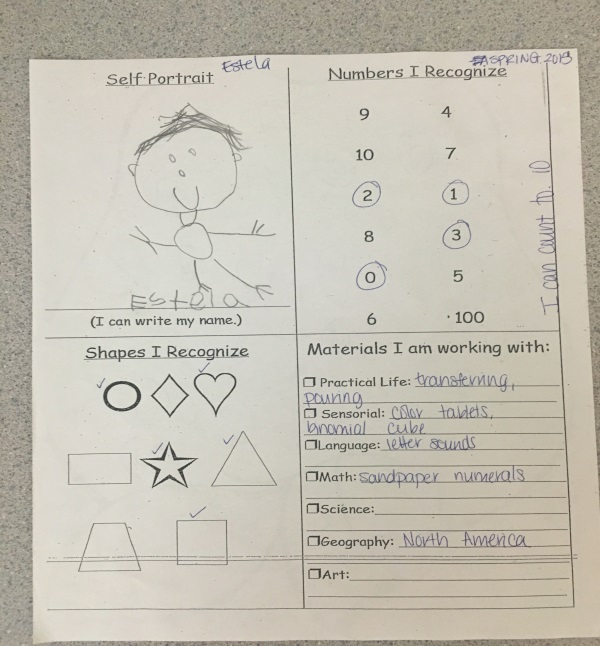 Estela
SPRING 2019
Self Portrait
Estela
(I can write my name.)
Numbers I Recognize
9 4
10 7
2 1
8 3
0 5
6 100
I can count to 10
Shapes I Recognize
Materials I am working with:
Practical Life: transferring,
pouring
Sensorial: color tablets,
binomial cube
Language: letter sounds
Math: sandpaper numerals
Science:
Geography: North America
Art: